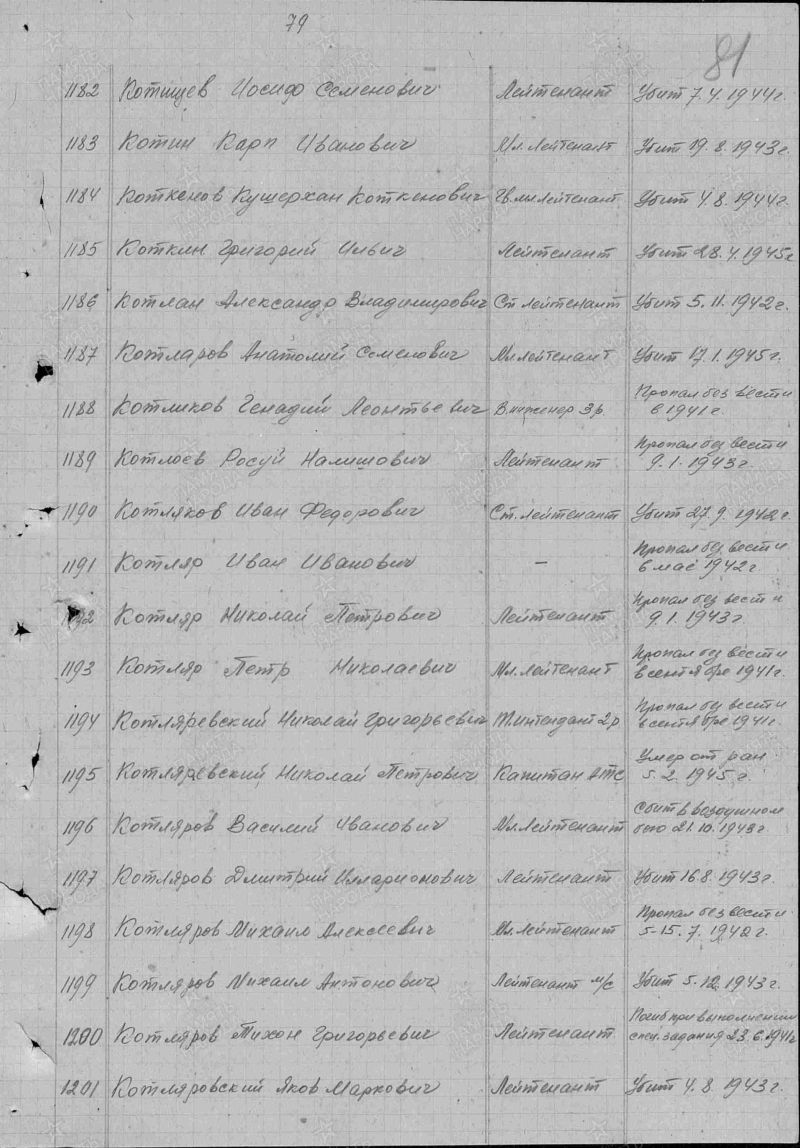 79
81
1182 Котищев Иосиф Семенович Лейтенант Убит 7.4.1944г.
1183 Котин Карп Иванович Мл. Лейтенант Убит 19.8.1943г.
1184 Коткенов Кушерхан Коткенович Гв. мл Лейтенант Убит 4.8.1944г.
1185 Коткин Григорий Ильич Лейтенант Убит 28.4.1945г
1186 Котлан Александр Владимирович Ст лейтенант Убит 5.11.1942г.
1187 Котларов Анатолий Семенович Мл. лейтенант Убит 17.1.1945г.
1188 Котликов Генадий Леонтьевич В.инженер 3р. Пропал без вести
в 1941г.
1189 Котлоев Росуй Налишович Лейтенант Пропал без вести
9.1.1943г.
1190 Котляков Иван Федорович Ст. лейтенант Убит 27.9.1942г.
1191 Котляр Иван Иванович – Пропал без вести
в мае 1942г.
1192 Котляр Николай Петрович Лейтенант Пропал без вести
9.1.1943г.
1193 Котляр Петр Николаевич Мл. лейтенант Пропал без вести
в сентябре 1941г.
1194 Котляревский Николай Григорьевич Т.интендант 2р Пропал без вести
в сентябре 1941г.
1195 Котляревский Николай Петрович Капитан АТС Умер от ран
5.2.1945г.
1196 Котляров Василий Иванович Мл. Лейтенант Сбит в воздушном
бою 21.10.1943г.
1197 Котляров Дмитрий Илларионович Лейтенант Убит 16.8.1943г.
1198 Котляров Михаил Алексеевич Мл. Лейтенант Пропал без вести
5-15.7.1942г.
1199 Котляров Михаил Антонович Лейтенант м/с Убит 5.12.1943г.
1200 Котляров Тихон Григорьевич Лейтенант Погиб при выполнении
спец. задания 23.6.1941г
1201 Котляровский Яков Маркович Лейтенант Убит 4.8.1943г.